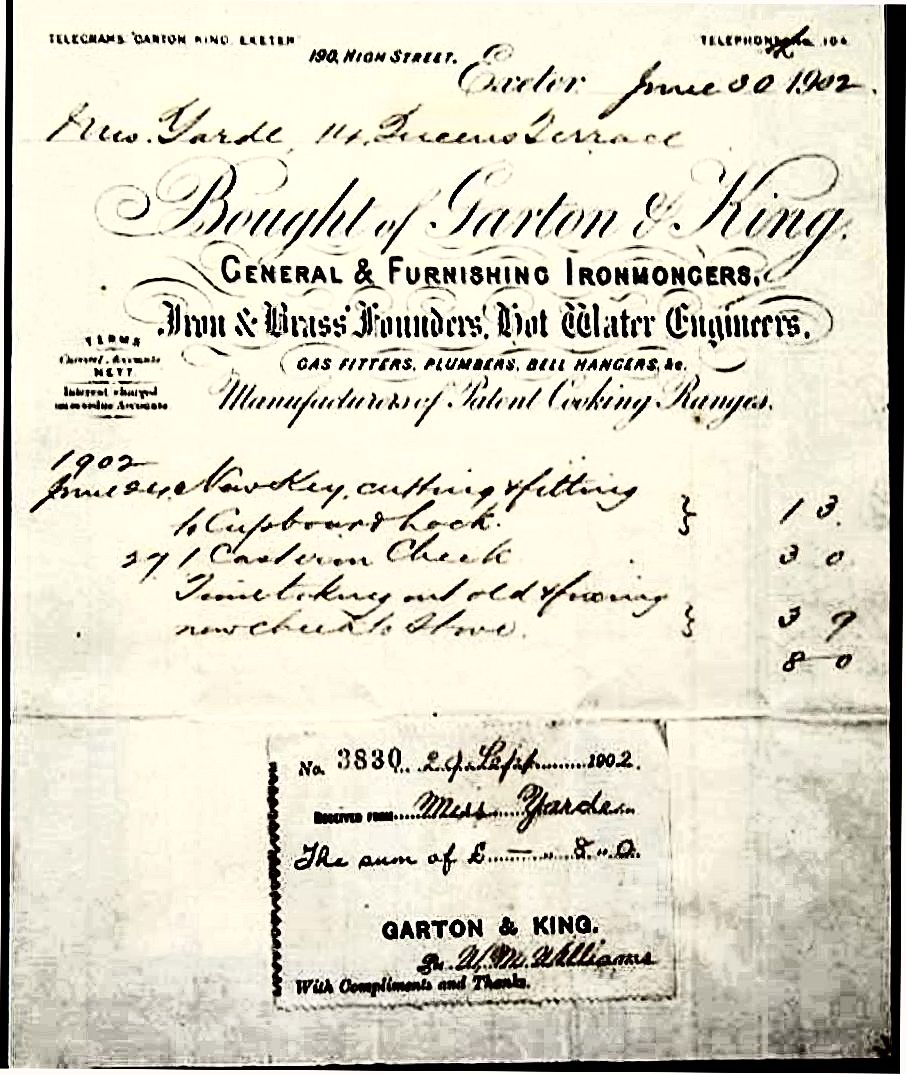 TELEGRAMS "GARTON KING, EXETER"
TELEPHONE No. 104
190, HIGH STREET.
Exeter June 30 1902.
Yarde, 14, Queens Terrace
Bought of Garton & King.
GENERAL & FURNISHING IRONMONGERS,
Iron & Brass Founders, Hot Water Engineers,
GAS FITTERS, PLUMBERS, BELL HANGERS, &c.
Manufacturers of Patent Cooking Ranges.
TERMS
Current Accounts
NETT
Interest charged
on overdue Accounts
1902
June 24 New Key, cutting & fitting
to Cupboard Lock. } 1 3
27 1 Cast iron Cheek 3 0
Time taking out old & fixing
new cheek to Stove. } 3 9
8 0
No. 3830 29 Sept 1902.
RECEIVED FROM Miss Yarde
The sum of £ — " 8 " 0
GARTON & KING.
Pr. W. M. Williams
With Compliments and Thanks.